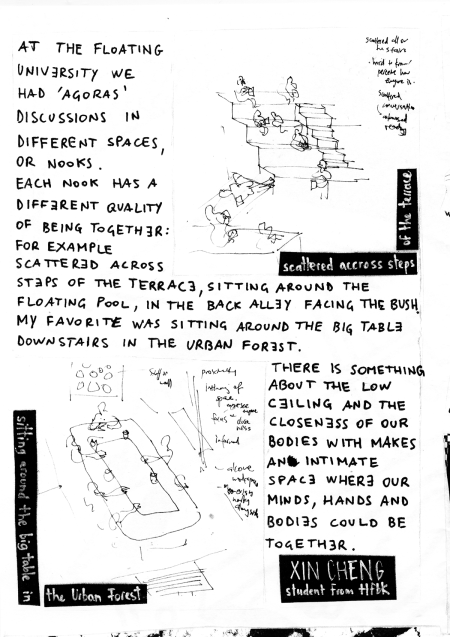 AT THE FLOATING
UNIVERSITY WE
HAD 'AGORAS'
DISCUSSIONS IN
DIFFERENT SPACES,
OR NOOKS.
EACH NOOK HAS A
DIFFERENT QUALITY
OF BEING TOGETHER:
FOR EXAMPLE
SCATTERED ACROSS
STEPS OF THE TERRACE, SITTING AROUND THE
FLOATING POOL, IN THE BACK ALLEY FACING THE BUSH.
MY FAVORITE WAS SITTING AROUND THE BIG TABLE
DOWNSTAIRS IN THE URBAN FOREST.
scattered all over
the stairs
scattered
conversation
scattered accross steps
of the terrace
THERE IS SOMETHING
ABOUT THE LOW
CEILING AND THE
CLOSENESS OF OUR
BODIES WITH MAKES
AN INTIMATE
SPACE WHERE OUR
MINDS, HANDS AND
BODIES COULD BE
TOGETHER.
proximity
intimacy of
space
focus
informal
sitting around the big table in
the Urban Forest
XIN CHENG
student from HFBK